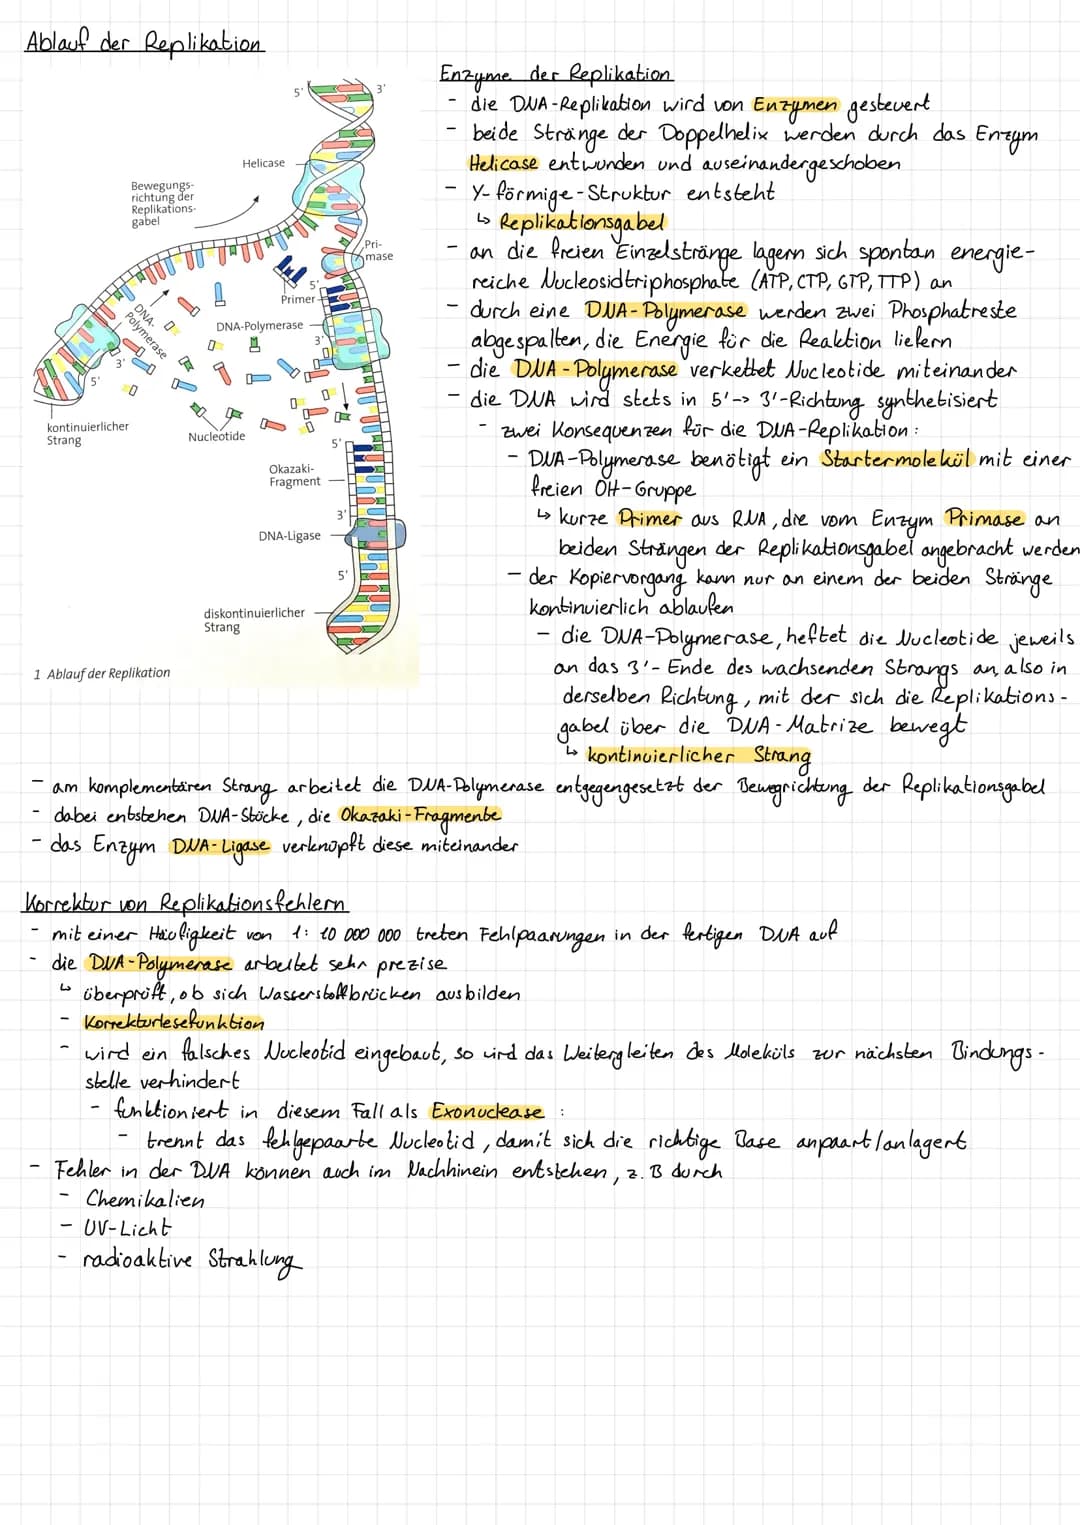 Ablauf der Replikation
5'
3'
Helicase
Bewegungs-
richtung der
Replikations-
gabel
Pri-
mase
5'
Primer
DNA-
Polymerase
DNA-Polymerase
3'
3'
5'
kontinuierlicher
Strang
Nucleotide
5'
Okazaki-
Fragment
3'
DNA-Ligase
5'
diskontinuierlicher
Strang
1 Ablauf der Replikation
Enzyme der Replikation
- die DNA-Replikation wird von Enzymen gesteuert
- beide Stränge der Doppelhelix werden durch das Enzym
Helicase entwunden und auseinandergeschoben
- Y-förmige-Struktur entsteht
↳ Replikationsgabel
- an die freien Einzelstränge lagern sich spontan energie-
reiche Nucleosidtriphosphate (ATP, CTP, GTP, TTP) an
- durch eine DNA-Polymerase werden zwei Phosphatreste
abgespalten, die Energie für die Reaktion liefern
- die DNA-Polymerase verkettet Nucleotide miteinander
- die DNA wird stets in 5'-> 3'-Richtung synthetisiert
- zwei Konsequenzen für die DNA-Replikation:
- DNA-Polymerase benötigt ein Startermolekül mit einer
freien OH-Gruppe
↳ kurze Primer aus RNA, die vom Enzym Primase an
beiden Strängen der Replikationsgabel angebracht werden
- der Kopiervorgang kann nur an einem der beiden Stränge
kontinuierlich ablaufen
- die DNA-Polymerase, heftet die Nucleotide jeweils
an das 3'-Ende des wachsenden Strangs an, also in
derselben Richtung, mit der sich die Replikations-
gabel über die DNA-Matrize bewegt
↳ kontinuierlicher Strang
- am komplementären Strang arbeitet die DNA-Polymerase entgegengesetzt der Bewegrichtung der Replikationsgabel
- dabei entstehen DNA-Stücke, die Okazaki-Fragmente
- das Enzym DNA-Ligase verknüpft diese miteinander
Korrektur von Replikationsfehlern
- mit einer Häufigkeit von 1: 10 000 000 treten Fehlpaarungen in der fertigen DNA auf
- die DNA-Polymerase arbeitet sehr prezise
↳ überprüft, ob sich Wasserstoffbrücken ausbilden
- Korrekturlesefunktion
- wird ein falsches Nucleotid eingebaut, so wird das Weitergleiten des Moleküls zur nächsten Bindungs-
stelle verhindert
- funktioniert in diesem Fall als Exonuclease :
- trennt das fehlgepaarte Nucleotid, damit sich die richtige Base anpaart/anlagert
- Fehler in der DNA können auch im Nachhinein entstehen, z.B durch
- Chemikalien
- UV-Licht
- radioaktive Strahlung